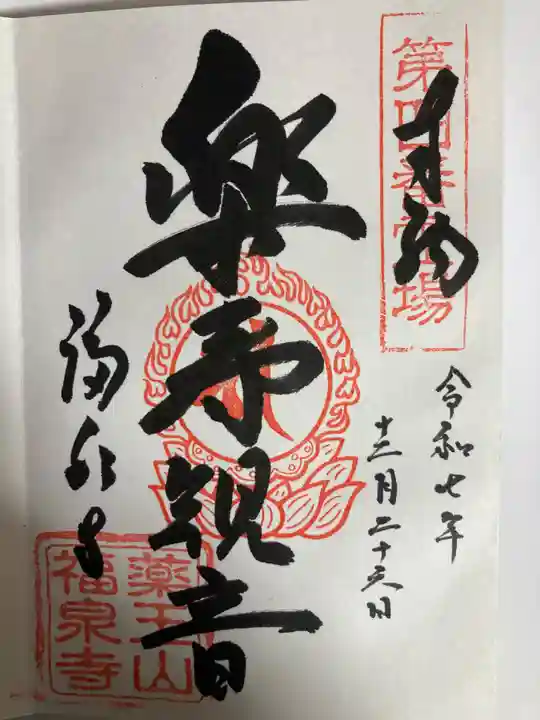 第四番霊場
奉拝
令和七年
十二月二十
楽寿観音
福泉寺
薬王山
福泉寺